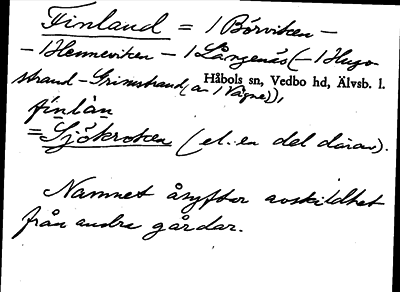 Finland = 1 Börviken –
– 1 Henneviken – 1 Långenäs (– 1 Hugo
strand – Grimstrand (av 1 Vågne)),
Håbols sn, Vedbo hd, Älvsb. l.
finlan
= Sjökroken (el. en del därav).
Namnet åsyftar avskildhet
från andra gårdar.